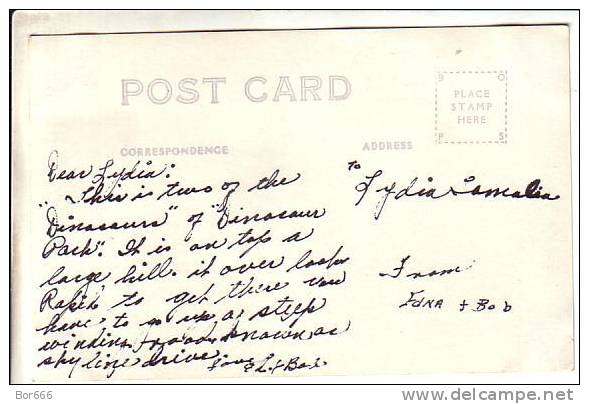 POST CARD
9 O
PLACE
STAMP
HERE
P S
CORRESPONDENCE
ADDRESS
Dear Lydia:
"This is two of the
Dinosaurs" of "Dinosaur
Park". It is on top a
large hill. it over looks
Rapid to get there you
have to go up a steep
winding road known as
sky line drive.
Love E. + Bob
To
Lydia
From
Edna + Bob
Bor666
www.delcampe.net